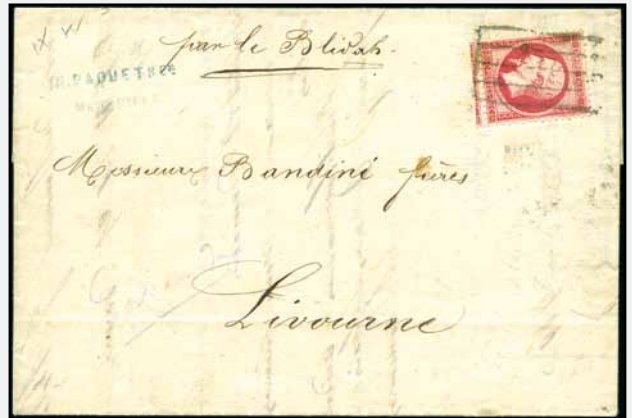 par le Blidah
PAQUET & Cie
Messieurs Bandini frères
Livourne